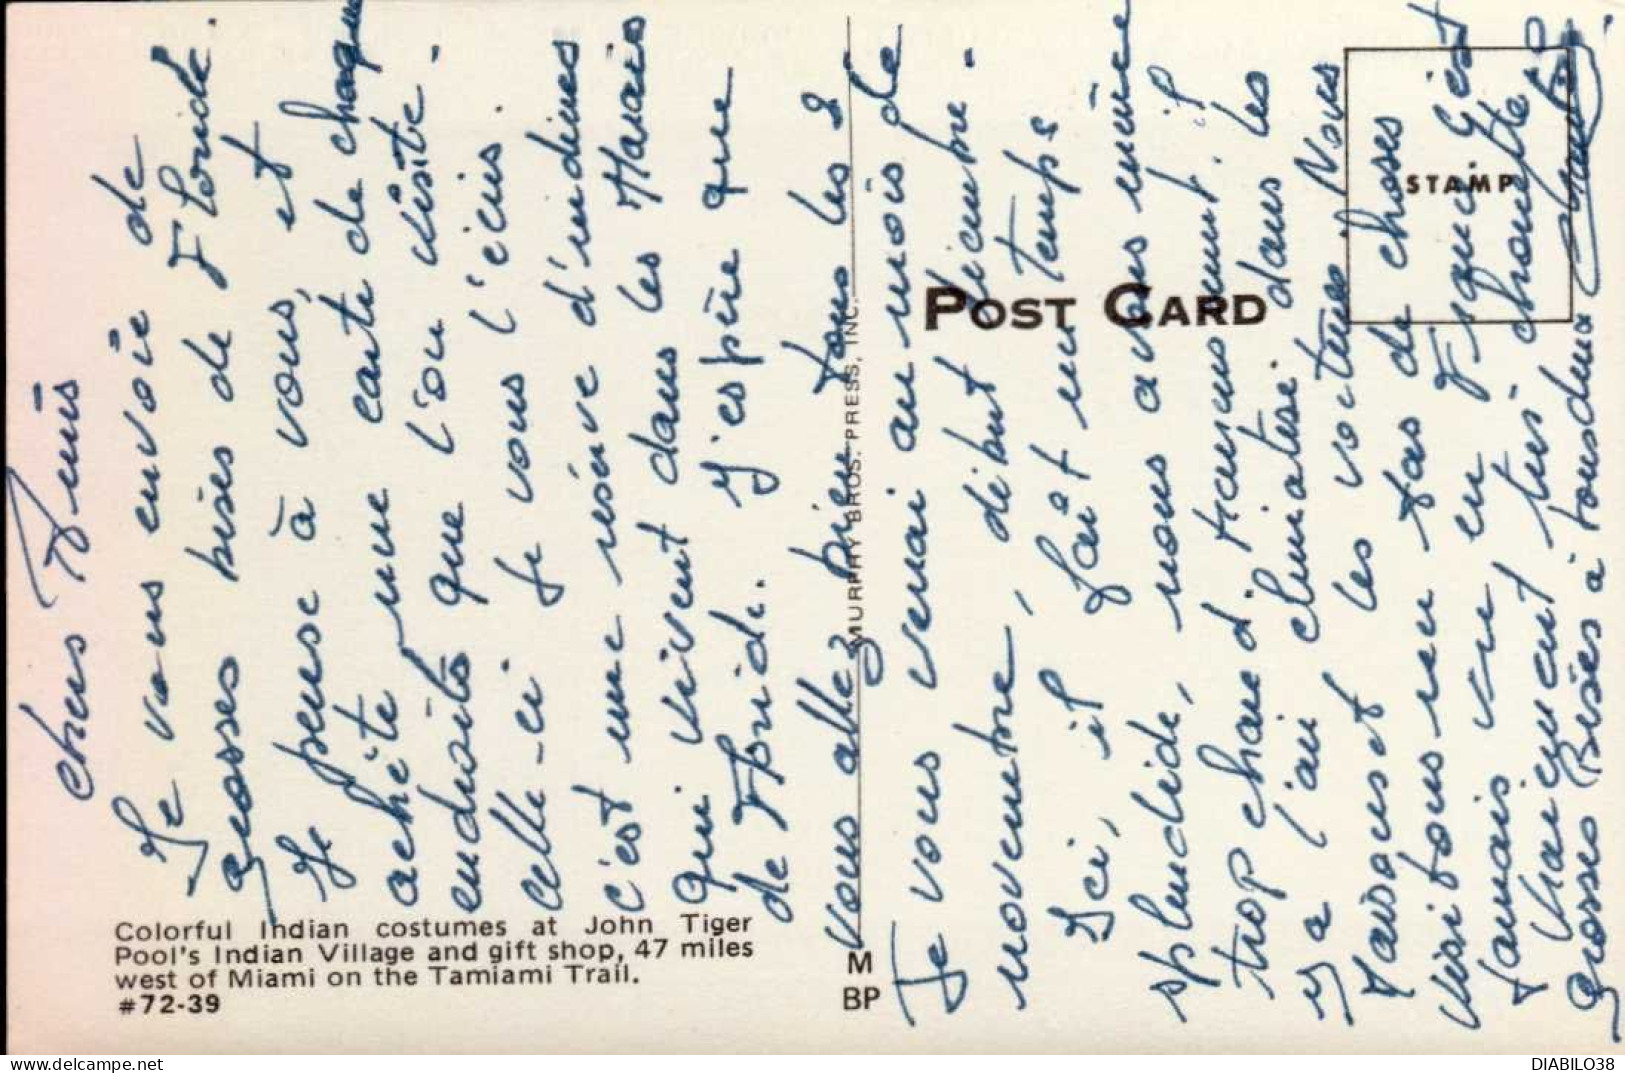 chers Amis
Je vous envoie de
grosses bises de Floride.
Je pense à vous, et
achète une carte de chaque
endroits que l'on visite.
celle-ci je vous l'écris.
c'est une réserve d'indiens
qui vivent dans les Marais
de Floride. J'espère que
vous allez bien tous les 2
Je vous verrai au mois de
novembre, début décembre.
Ici, il fait un temps
splendide, nous avons même
trop chaud. heureusement. il
y a l'air climatisé dans les
Maisons et les voitures. Nous
visitons un tas de choses
jamais vu en France. C'est
vraiment très chouette.
Grosses Bises à tous deux
POST CARD
STAMP
MURPHY BROS. PRESS, INC.
M
BP
Colorful Indian costumes at John Tiger
Pool's Indian Village and gift shop, 47 miles
west of Miami on the Tamiami Trail.
#72-39
delcampe.net
DIABILO38